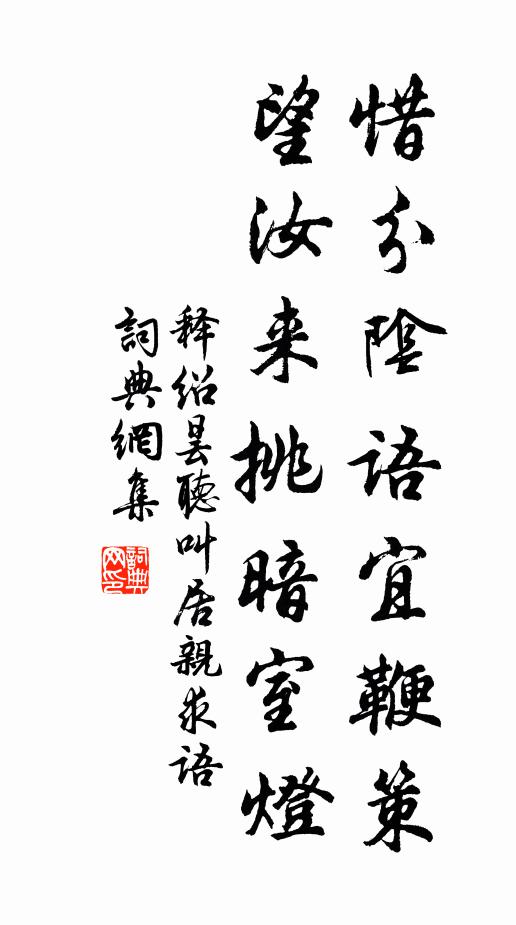 惜分陰語宜鞭策
望汝来挑暗室燈
释绍曇聽叫居親求语
詞典網集
詞典網印